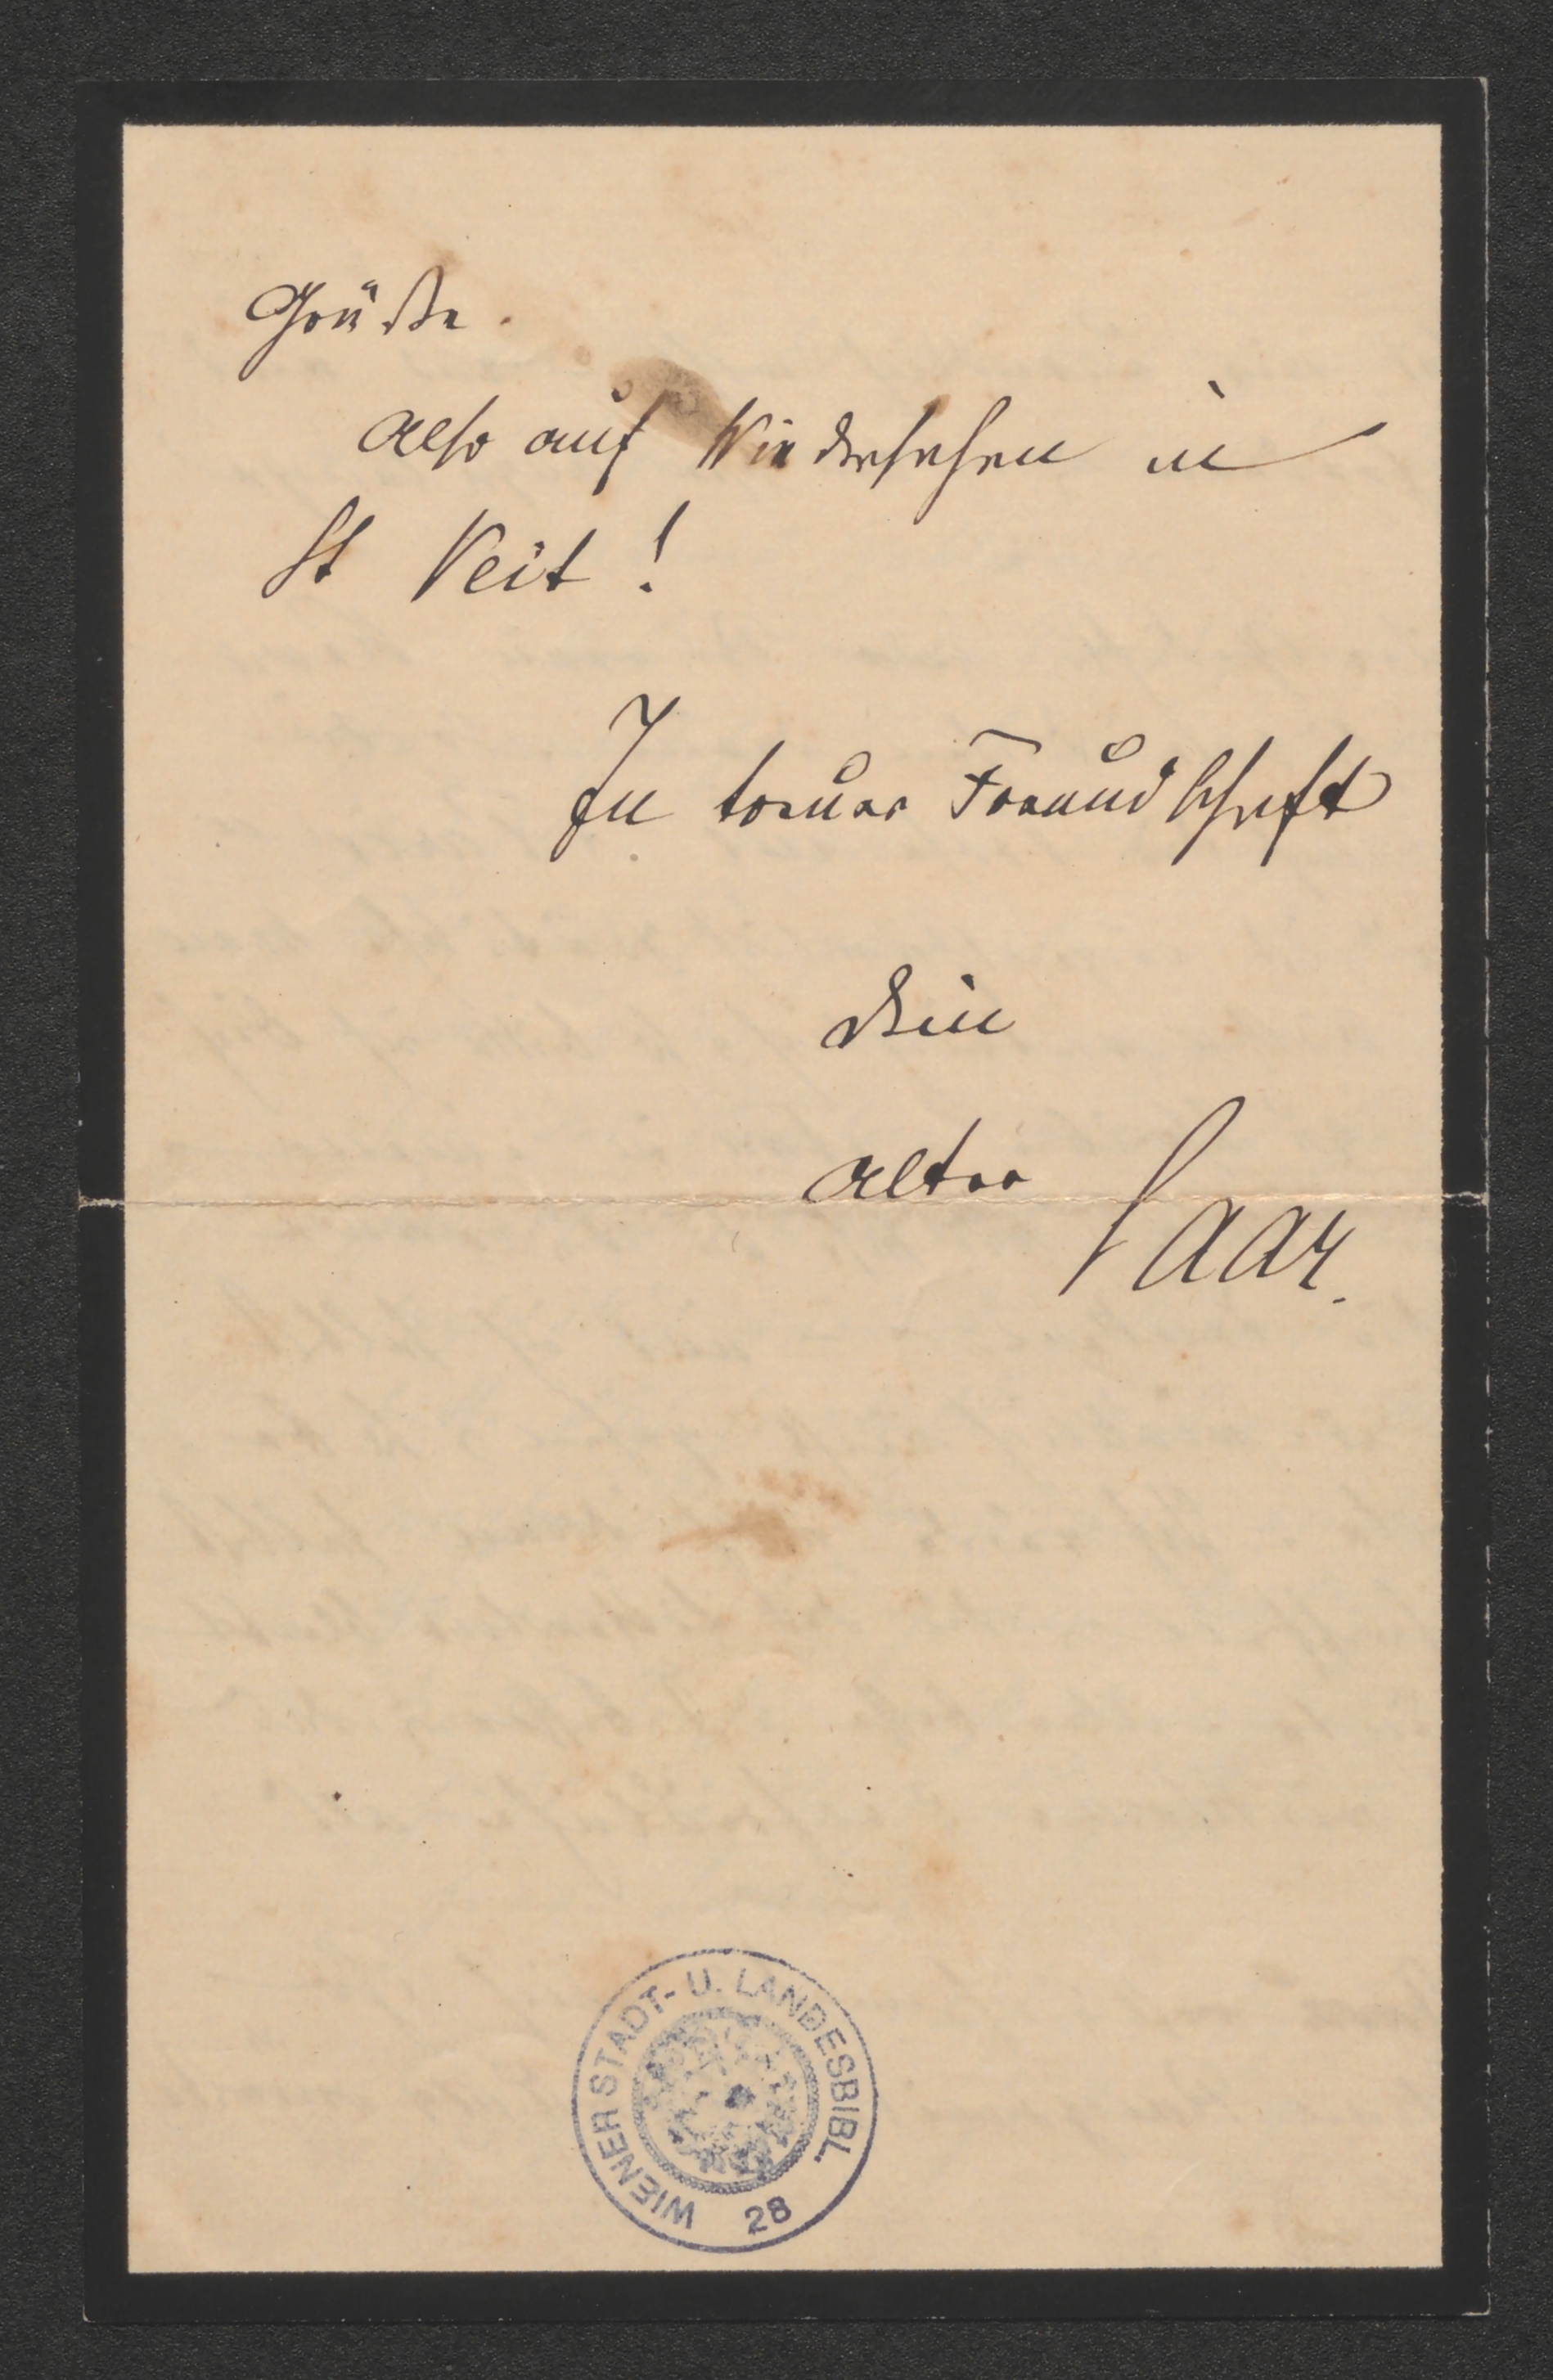 Grüße.
Also auf Wiedersehen in
St Veit!
In treuer Freundschaft
Dein
alter Saar.
WIENER STADT- U. LANDESBIBL.
28